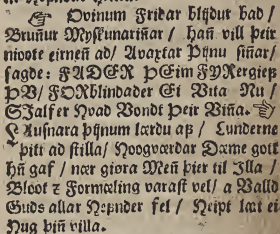 ☞ Ovinum Fridar blijdut bad /
Brunnur Myskunarinnar / hann vill þeir
nioote eirnenn ad / Avaxtar Pijnu sinnar /
sagde: FADER ÞEim FYRergief
ÞV / FORblindader Ei Vita Nu /
SIalfer Hvad Vondt Þeir Vinna. ☜
LAusnara þijnum lærdu af / Lunderne
þitt ad stilla / Hoogværdar Dæme gott
hn̄ gaf / nær giøra Menn þier til Illa /
Bloot z Formæling varast vel / a Valld
Guds allar Hefnder fel / Heipt lat ei
Hug þin̄ villa.